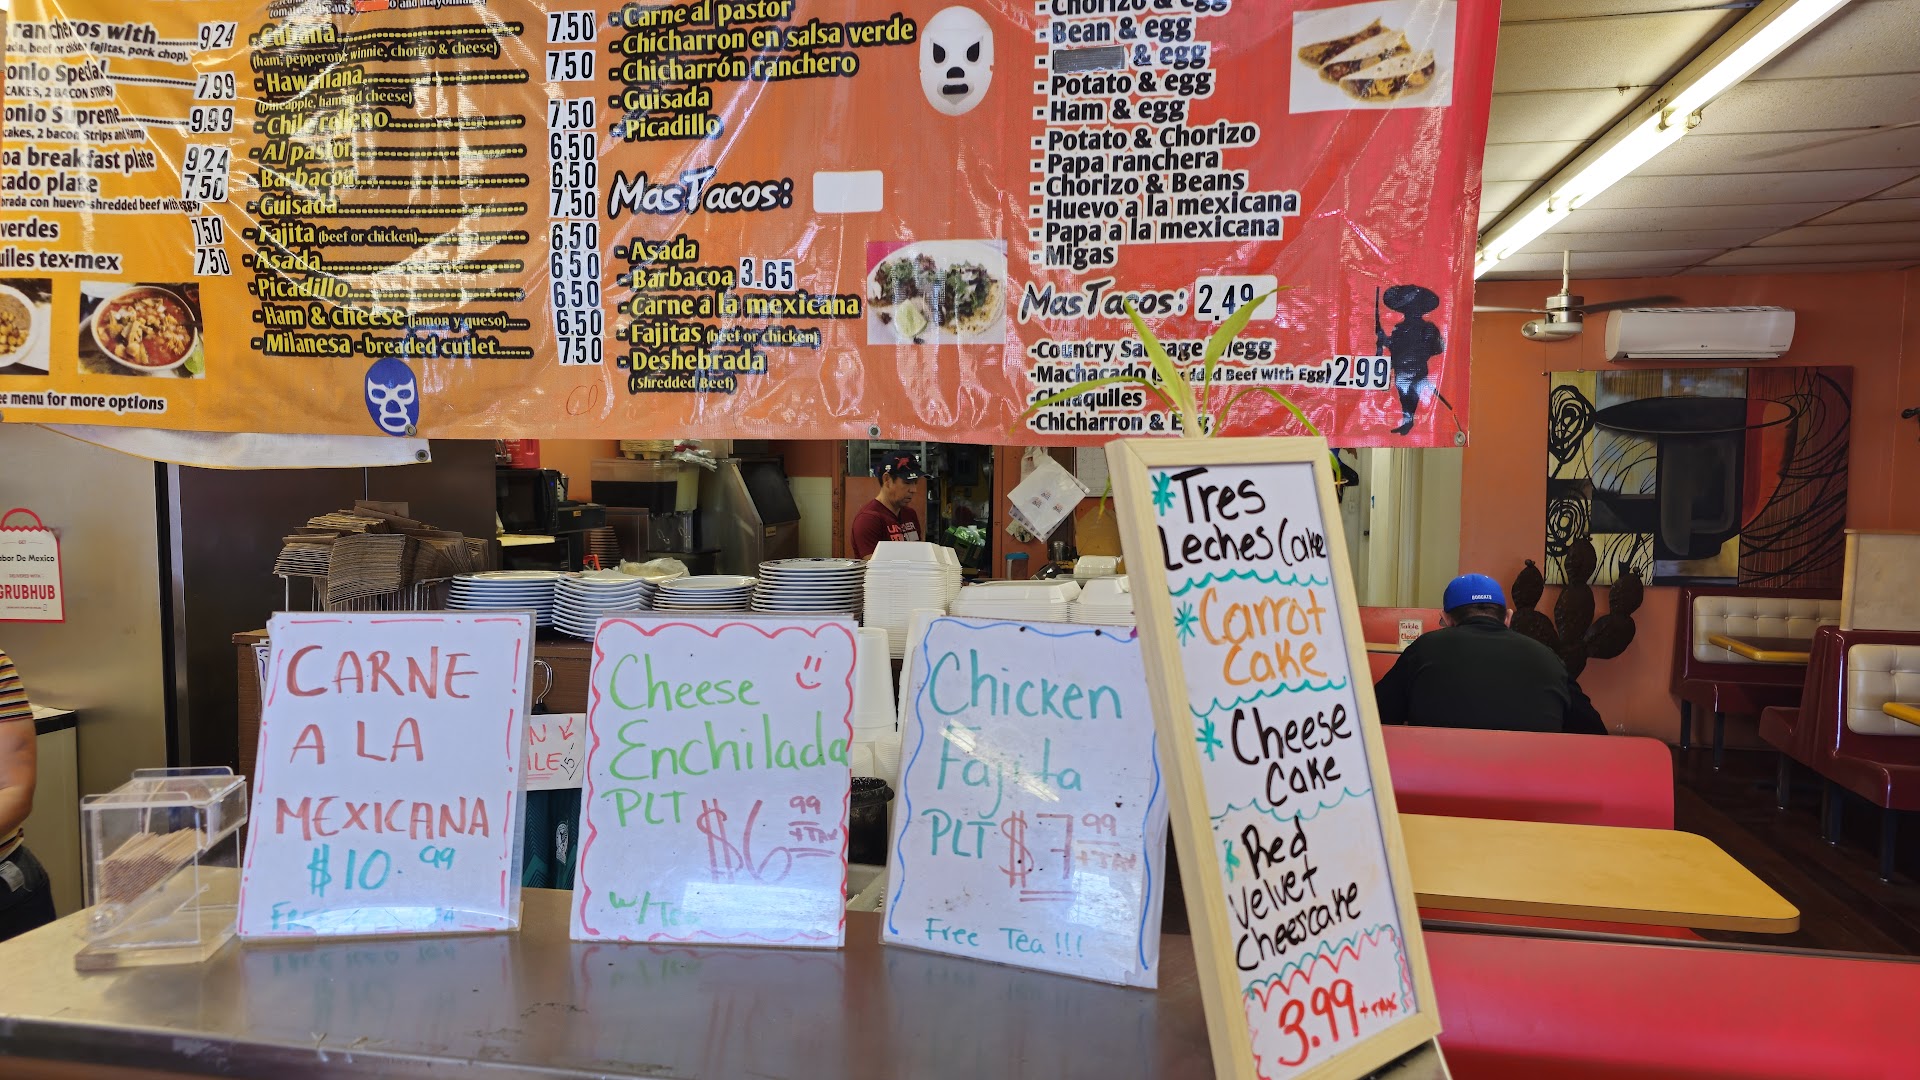 rancheros with 9.24
fajitas, pork chop).
Special 7.99
CAKES, 2 BACON STRIPS)
onio Supreme 9.99
cakes, 2 bacon Strips and Ham)
oa breakfast plate 9.24
cado plate 7.50
brada con huevo-shredded beef with eggs)
verdes 7.50
uiles tex-mex 7.50
menu for more options
and mayonnaise)
- Cubana 7.50
(ham, pepperoni, winnie, chorizo & cheese)
- Hawaiiana 7,50
(pineapple, ham and cheese)
- Chile relleno 7.50
- Al pastor 6.50
- Barbacoa 6.50
- Guisada 7.50
- Fajita (beef or chicken) 6.50
- Asada 6.50
- Picadillo 6.50
- Ham & cheese (jamon y queso) 6.50
- Milanesa - breaded cutlet 7.50
- Carne al pastor
- Chicharron en salsa verde
- Chicharrón ranchero
- Guisada
- Picadillo
Mas Tacos:
- Asada
- Barbacoa 3.65
- Carne a la mexicana
- Fajitas (beef or chicken)
- Deshebrada
(Shredded Beef)
- Chorizo & egg
- Bean & egg
- & egg
- Potato & egg
- Ham & egg
- Potato & Chorizo
- Papa ranchera
- Chorizo & Beans
- Huevo a la mexicana
- Papa a la mexicana
- Migas
Mas Tacos: 2.49
- Country Sausage & egg
- Machacado (Shredded Beef With Egg) 2.99
- Chilaquiles
- Chicharron & Egg
bor De Mexico
GRUBHUB
CARNE
A LA
MEXICANA
$10.99
Cheese
Enchilada
PLT $6.99
+TAX
W/Tea
Chicken
Fajita
PLT $7.99
+TAX
Free Tea!!!
* Tres
Leches Cake
* Carrot
Cake
* Cheese
Cake
* Red
Velvet
Cheesecake
3.99 + TAX
BOBCATS